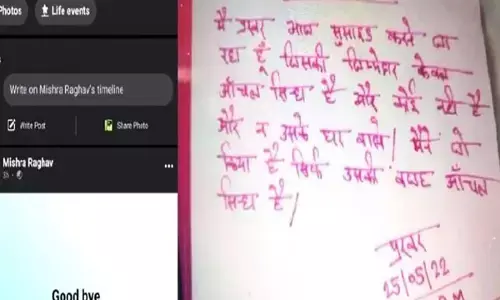 Photos
Life events
Write on Mishra Raghav's timeline
Write Post
Share Photo
Mishra Raghav
Good bye
मै प्रखर आज सुसाइड करने जा
रहा हूँ जिसकी जिम्मेदार केवल
आँचल है और कोई नही है
और न उसके घर वाले। मैंने जो
किया है सिर्फ उसकी वजह आँचल
है।
प्रखर
25/05/22